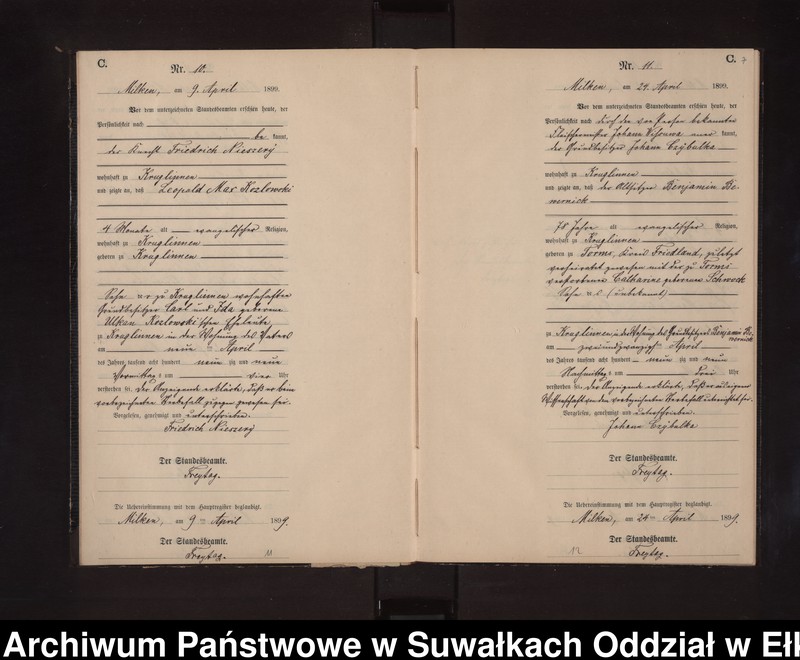 C.
Nr. 10.
Milken, am 9. April 1899.
Vor dem unterzeichneten Standesbeamten erschien heute, der
Persönlichkeit nach
be kannt,
der Knecht Friedrich Nieszery
wohnhaft zu Kruglinnen
und zeigte an, daß Leopold Max Kozlowski
4 Monate alt evangelischer Religion,
wohnhaft zu Kruglinnen
geboren zu Kruglinnen
Sohn der zu Kruglinnen wohnhaften
Grundbesitzer Carl und Ida geborene
Ulkan Kozlowski'schen Eheleute
zu Kruglinnen in der Wohnung des Vaters
am neun ten April
des Jahres tausend acht hundert neun zig und neun
Vormittags um vier Uhr
verstorben sei, der Anzeigende erklärte, daß er beim
vorbezeichneten Sterbefall zugegen gewesen sei.
Vorgelesen, genehmigt und unterschrieben.
Friedrich Nieszery
Der Standesbeamte.
Freytag.
Die Uebereinstimmung mit dem Hauptregister beglaubigt.
Milken, am 9ten April 1899.
Der Standesbeamte.
Freytag.
11
C. 7
Nr. 11.
Milken, am 24. April 1899.
Vor dem unterzeichneten Standesbeamten erschien heute, der
Persönlichkeit nach durch den von Person bekannten
Johann aner kannt,
der Grundbesitzer Johann Czybulka
wohnhaft zu Kruglinnen
und zeigte an, daß der Altsitzer Benjamin Be-
mernick
78 Jahre alt evangelischer Religion,
wohnhaft zu Kruglinnen
geboren zu Kreis Friedland, zuletzt
verheiratet gewesen mit der zu
verstorbenen Catharine geborenen Schwock
Sohn der (unbekannt)
zu Kruglinnen, in der Wohnung des Grundbesitzers Benjamin Be-
mernick
am zweiundzwanzigsten April
des Jahres tausend acht hundert neun zig und neun
Nachmittags um drei Uhr
verstorben sei, der Anzeigende erklärte, daß er aus eigener
Wissenschaft von dem vorbezeichneten Sterbefall unterrichtet sei.
Vorgelesen, genehmigt und unterschrieben.
Johann Czybulka
Der Standesbeamte.
Freytag.
Die Uebereinstimmung mit dem Hauptregister beglaubigt.
Milken, am 24ten April 1899.
Der Standesbeamte.
Freytag.
12
Archiwum Państwowe w Suwałkach Oddział w Ełk